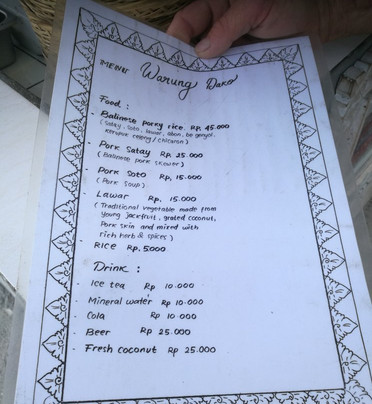 MENU Warung Dako
Food :
- Balinese porky rice Rp. 45.000
( Satay, Soto, lawar, abon, be genyol,
kerupuk celeng / chicaron )
- Pork Satay Rp 25.000
( Balinese pork skewer )
- Pork Soto Rp. 15.000
( Pork Soup )
- Lawar Rp. 15.000
( Traditional vegetable made from
young jackfruit, grated coconut,
Pork skin and mixed with
rich herb & spices )
- Rice Rp. 5000
Drink :
- Ice tea Rp 10.000
- Mineral water Rp 10.000
- Cola Rp 10.000
- Beer Rp 25.000
- Fresh coconut Rp 25.000